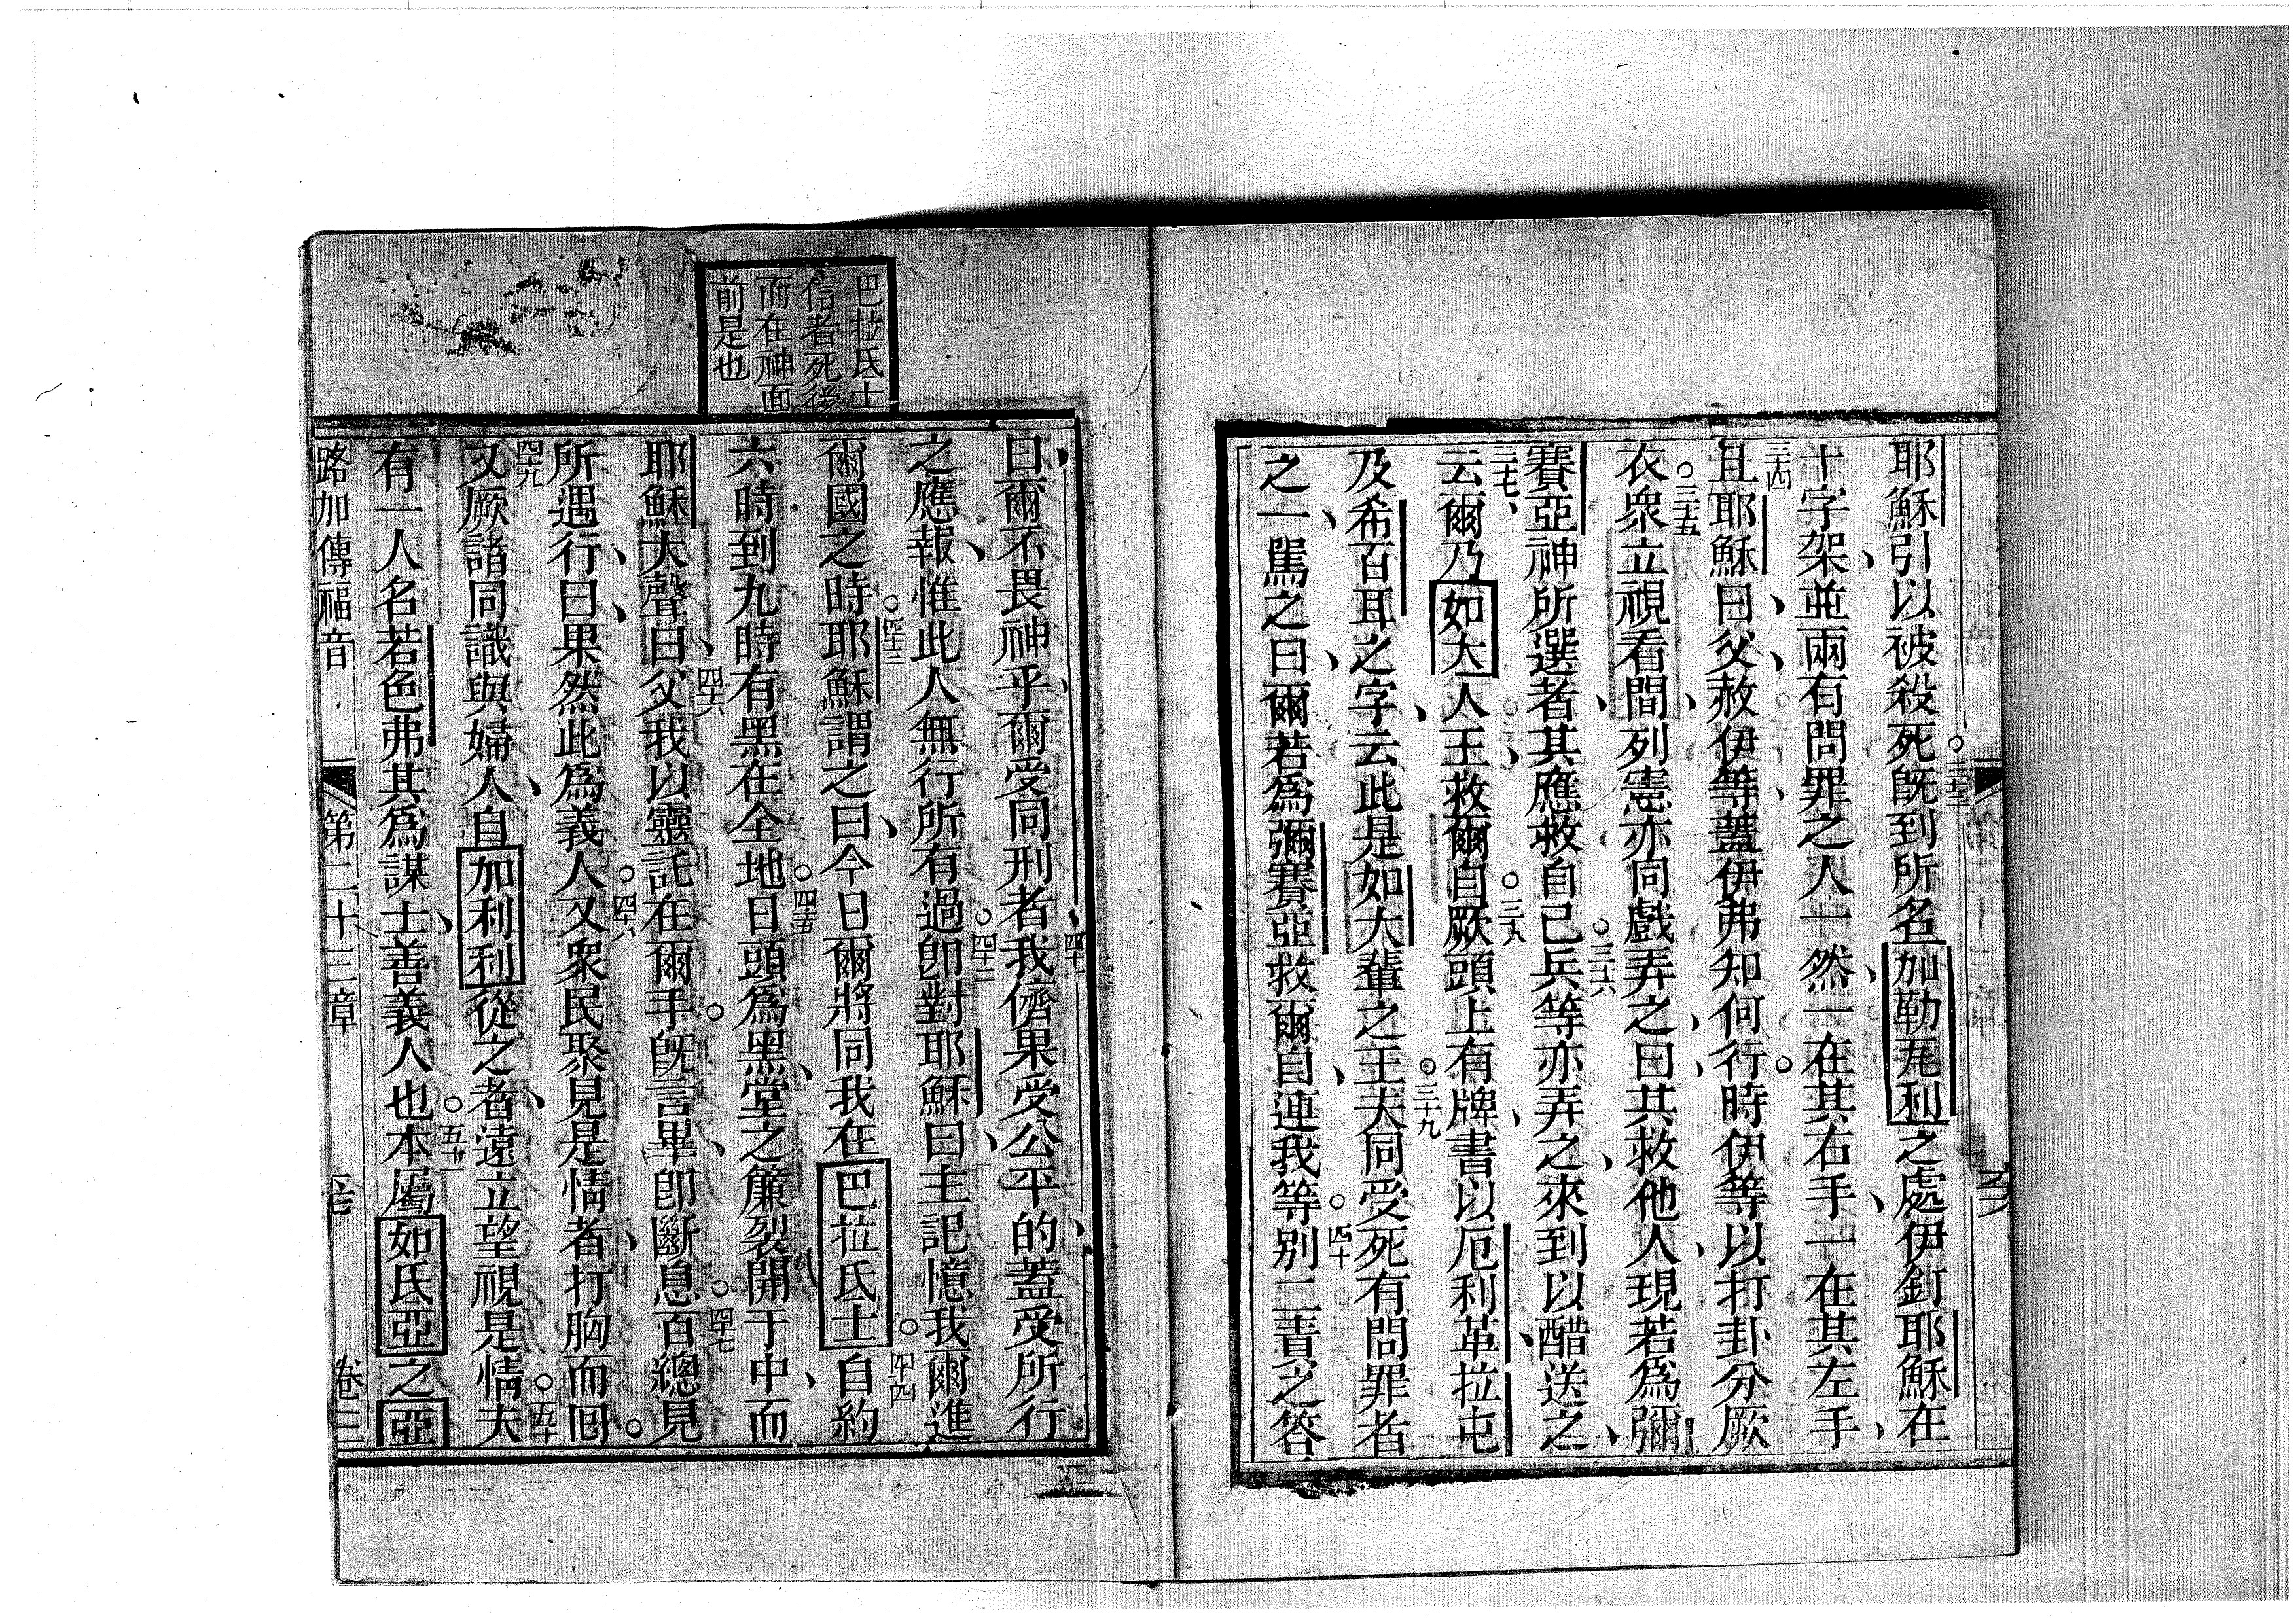 耶穌引以被殺死。三十三既到所名加勒瓦利之處伊釘耶穌在
十字架、並兩有問罪之人一然、一在其右手、一在其左手、
三十四且耶穌曰、父、赦伊等、蓋伊弗知何行。時伊等以打卦分厥
衣。三十五衆立視看間、列憲亦同戲弄之、曰、其救他人、現若為彌
賽亞神所選者、其應救自己。三十六兵等亦弄之、來到以醋送之、
三十七、云爾乃如大人王、救爾自。三十八厥頭上有牌、書以厄利革、拉屯
及希百耳之字、云此是如大輩之王。三十九夫同受死有問罪者
之一、罵之曰、爾若為彌賽亞救爾自、連我等。四十別一責之答
巴拉氏士
信者死後
而在神面
前是也
曰、爾不畏神乎、爾受同刑者、四十一我儕果受公平的、蓋受所行
之應報、惟此人無行所有過。四十二即對耶穌曰、主記憶我爾進
爾國之時。四十三耶穌謂之曰、今日爾將同我在巴拉氏士。四十四自約
六時到九時有黑在全地。四十五日頭為黑、堂之簾裂開于中、而
耶穌大聲曰、四十六父我以靈託在爾手。既言畢、即斷息。四十七百總見
所遇行、曰、果然此為義人。四十八又衆民聚見是情者、打胸而回。
四十九又厥諸同識與婦人、自加利利從之者、遠立望視是情。五十夫
有一人名若色弗其為謀士、善義人也。五十一本屬如氏亞之亞
路加傳福音 第二十三章 卷三